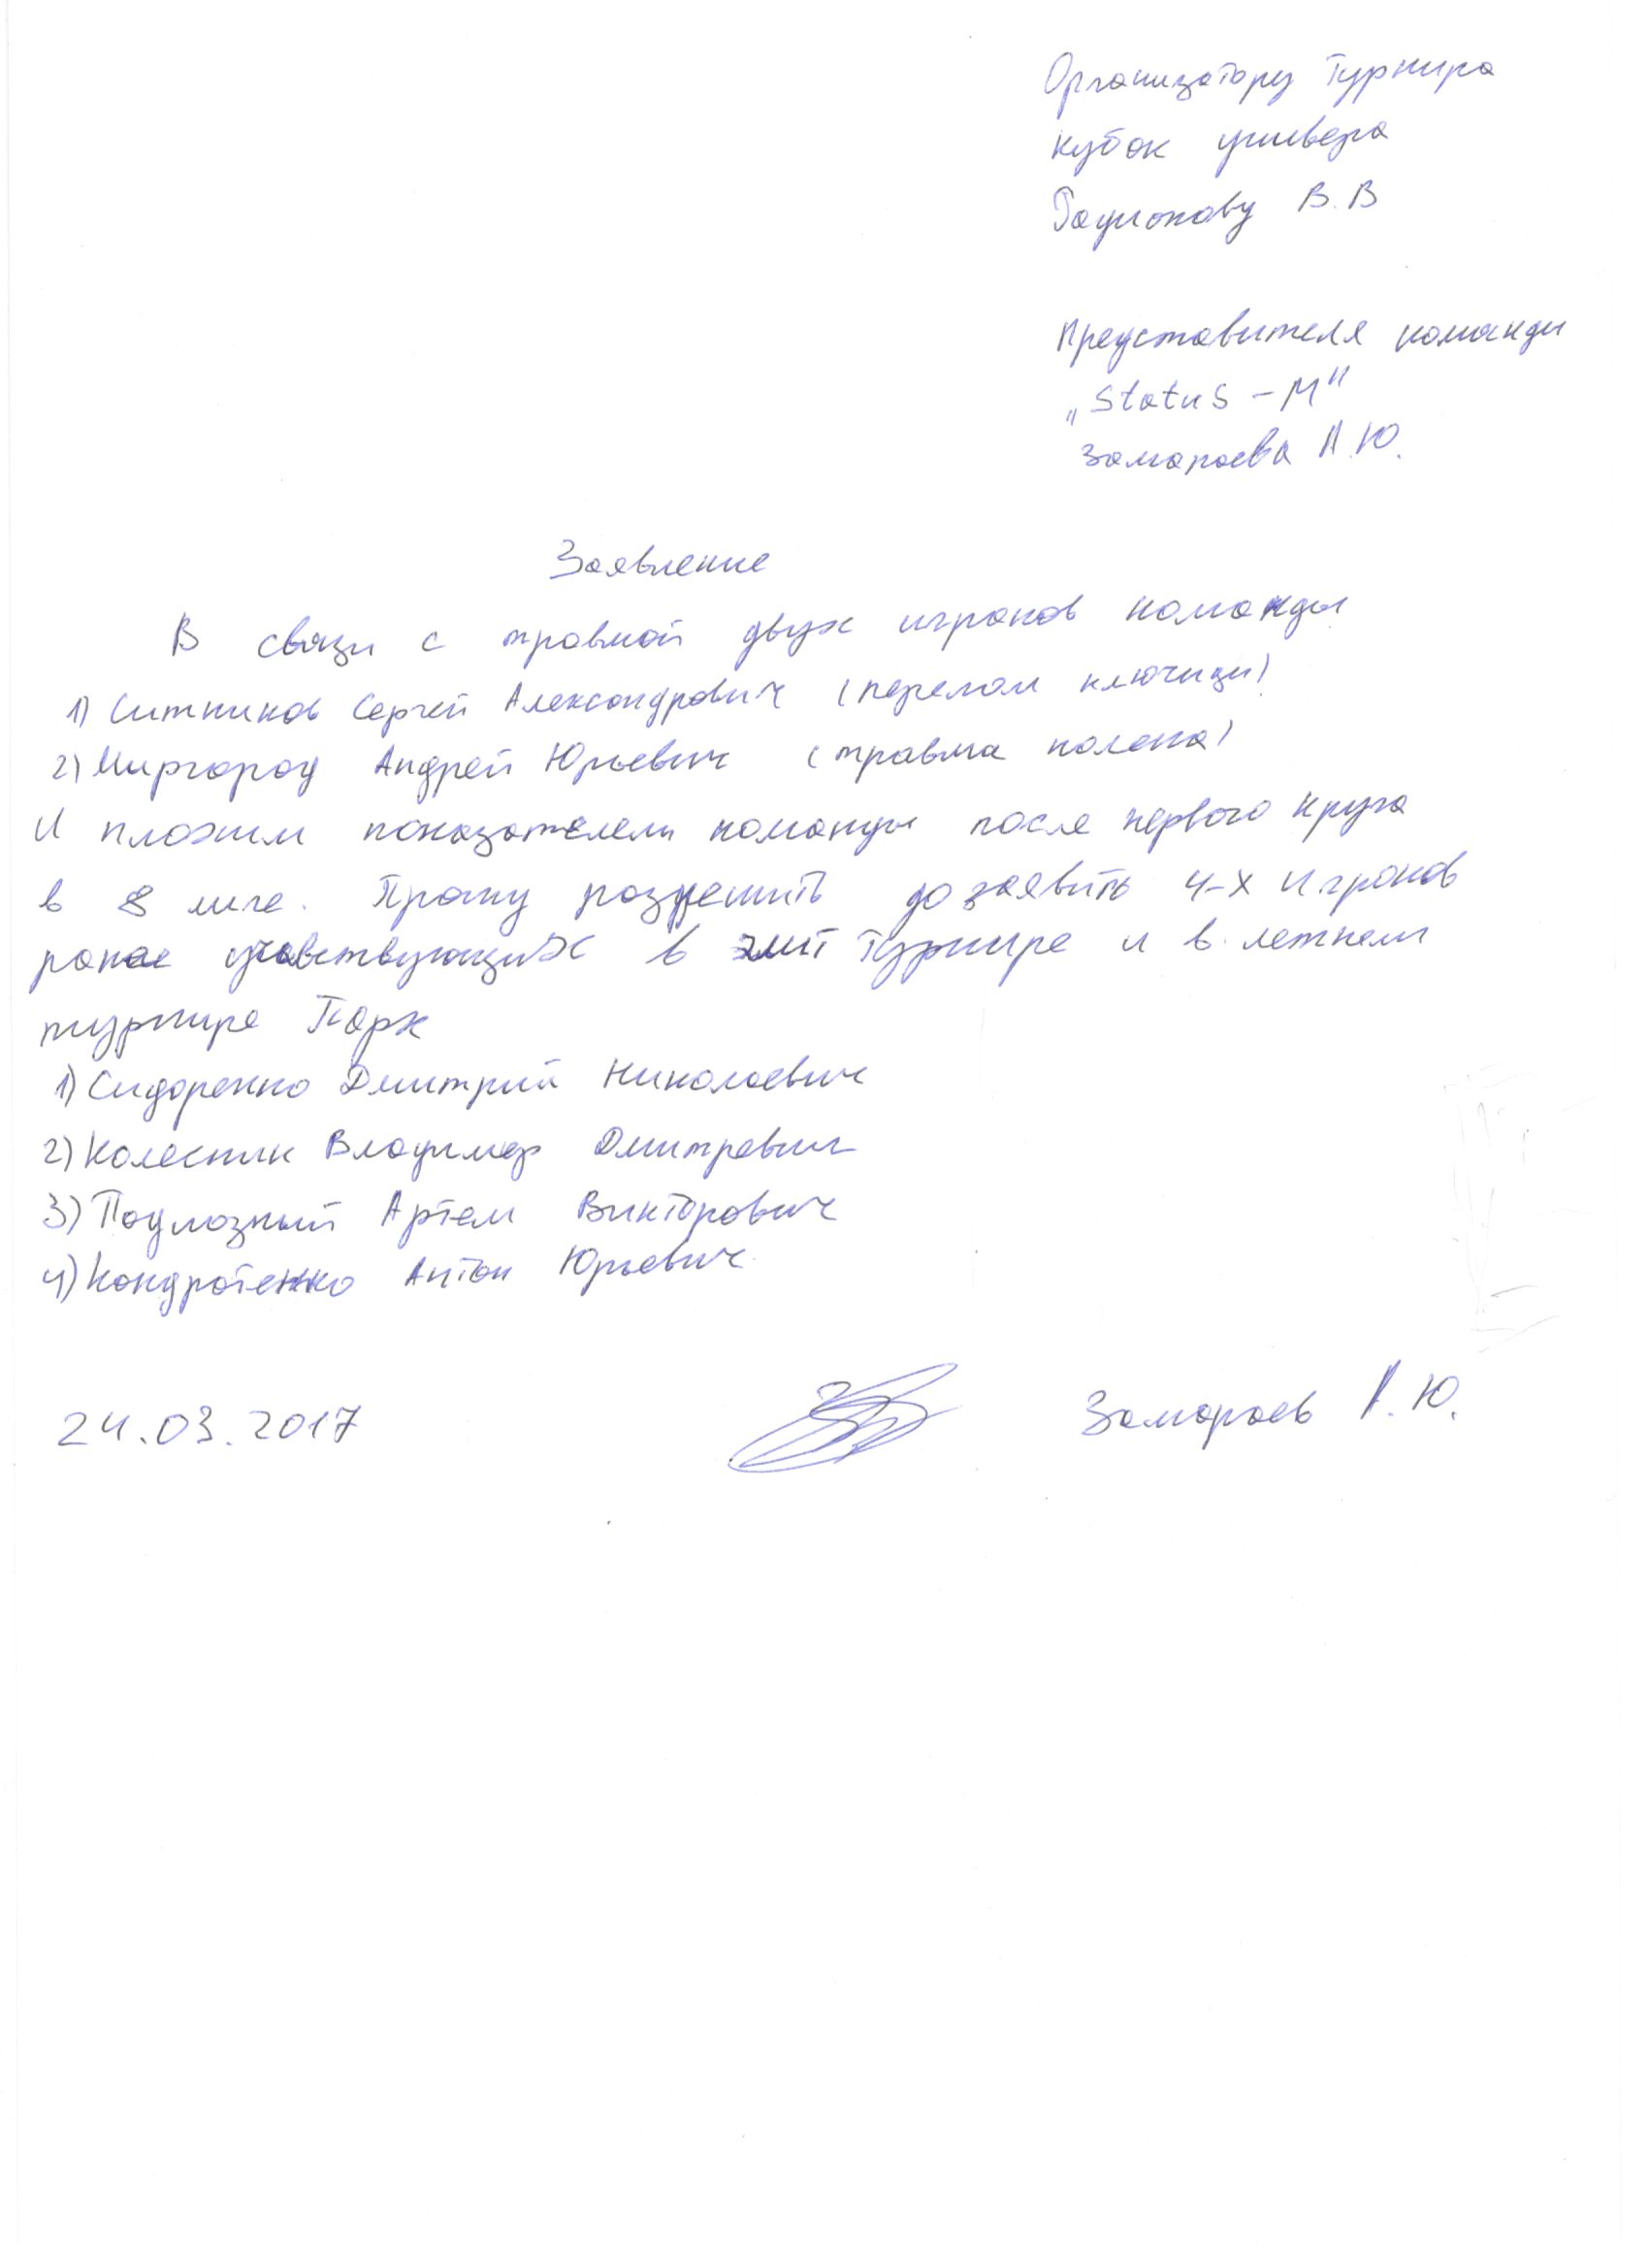 Организатору Турнира
Кубок универа
В.В
Представителя команды
„Status - M"
Замараева А.Ю.
Заявление
В связи с травмой двух игроков команды
1) Ситников Сергей Александрович (перелом ключицы)
2) Миргород Андрей Юрьевич (травма колена)
И плохим показателем команды после первого круга
в 8 лиге. Прошу разрешить до заявить 4-х игроков
ранее учавствующих в Турнире и в летнем
турнире Парк
1) Сидоренко Дмитрий Николаевич
2) Колесник Владимир Дмитревич
3) Подлозный Артем Викторович
4) Кондратенко Антон Юрьевич
24.03.2017 Замараев А.Ю.